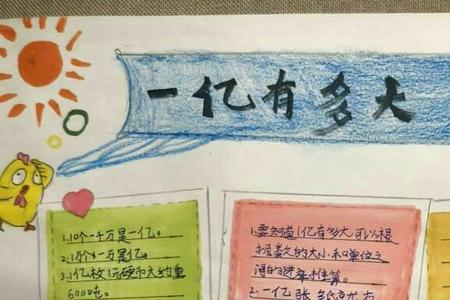 一亿有多大
1.10个一千万是一亿。
2.1万个一万是亿。
3.1亿枚1元硬币大约重
600吨。
1.要知道1亿有多大可以根
据数的大小和单位之
间的进率推算。
2.一亿张